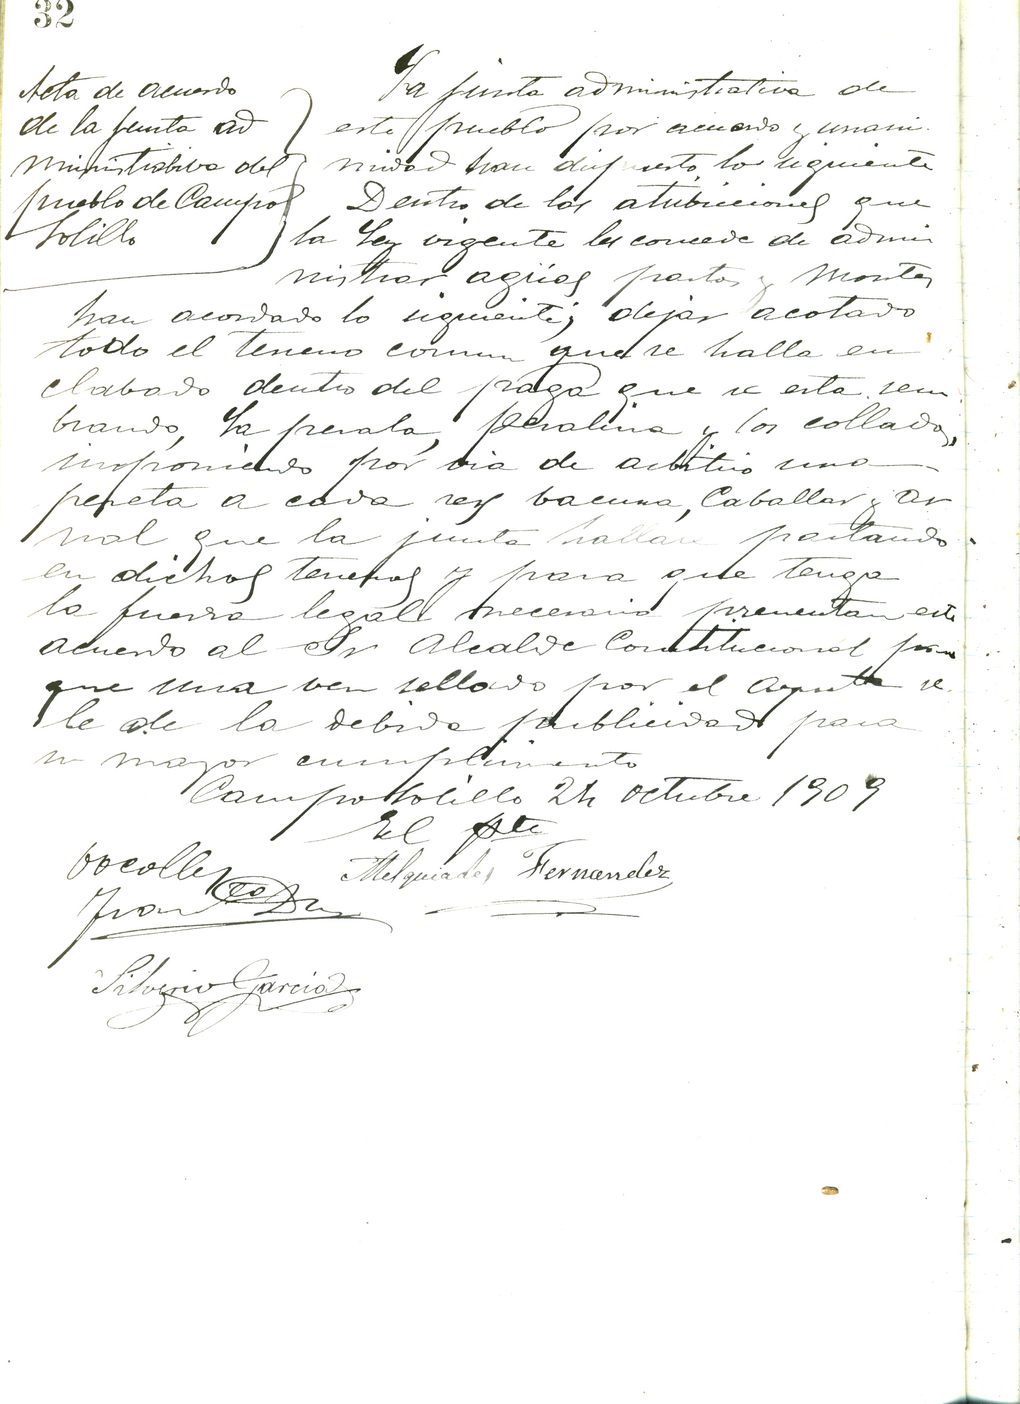 32
Acta de acuerdo
de la junta ad
ministrativa del
pueblo de Campo
solillo
La junta administrativa de
este pueblo por acuerdo y unani
midad han dispuesto lo siguiente
Dentro de las atribuciones que
la Ley vigente les concede de admi
nistrar agüas pastos y Montes
han acordado lo siguiente; dejar acotado
todo el terreno comun que se halla en
clabado dentro del pago que se esta sem
brando, La perala, Peralina y los collados,
imponiendo por via de arbitrio una
peseta a cada res bacuna, Caballar y as
nal que la junta hallare pastando
en dichos terrenos y para que tenga
la fuerza legal necesaria presentan este
acuerdo al Sr Alcalde Constitucional para
que una ves sellado por el Ayunto se
le de la debida publicidad para
su mayor cumplimiento
Camposolillo 24 octubre 1909
El Pte
Melquiades Fernandez
bocalles
Silverio Garcia